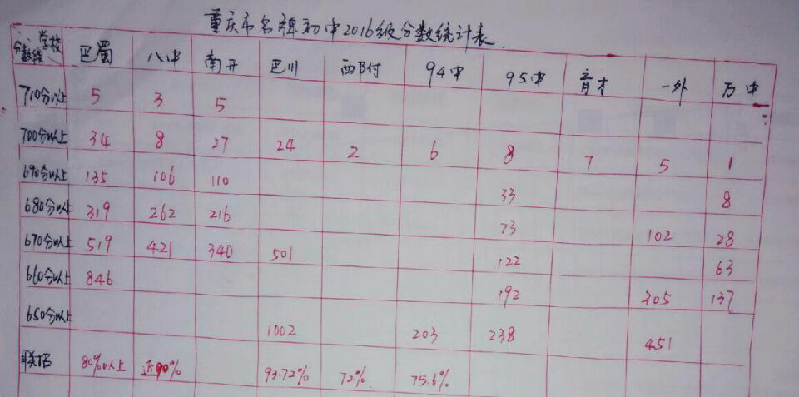 重庆市名牌初中2016级分数统计表
学校 分数线 巴蜀 八中 南开 巴川 西附 94中 95中 育才 一外 万中
710分以上 5 3 5
700分以上 34 8 27 24 2 6 8 7 5 1
690分以上 135 106 110 33 8
680分以上 319 262 216 73 102 28
670分以上 519 421 340 501 122 63
660分以上 846 192 305 137
650分以上 1002 203 238 451
联招 80%以上 近90% 93.72% 72% 75.6%